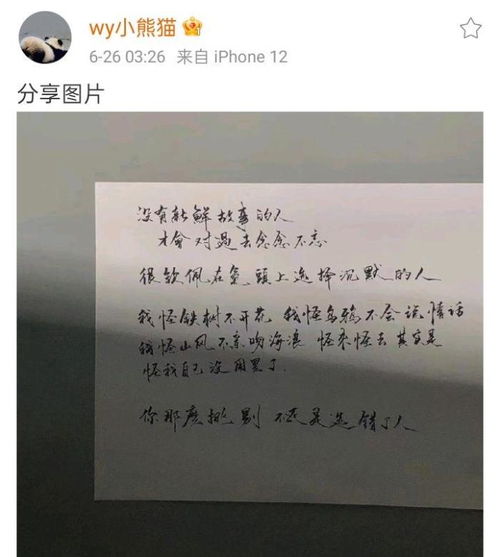 wy小熊猫
6-26 03:26 来自 iPhone 12
分享图片
没有新鲜故事的人
才会对过去念念不忘
很钦佩在气头上选择沉默的人
我怪铁树不开花 我怪乌鸦不会说情话
我怪山风不亲吻海浪 怪来怪去其实是
怪我自己没用罢了
你那麽挑剔 不还是选错了人